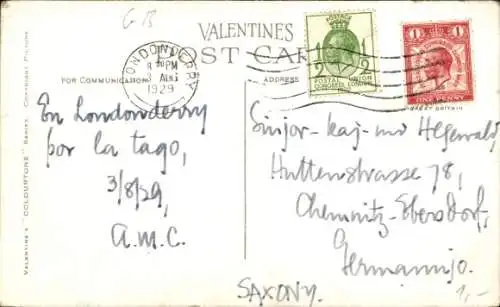 G B
VALENTINES
POST CARD
FOR COMMUNICATION
ADDRESS
LONDONDERRY
8 PM
3 AUG
1929
POSTAGE
1/2 1/2
POSTAL UNION
CONGRESS LONDON
1 1
ONE PENNY
VALENTINE'S "COLOURTONE" SERIES. COPYRIGHT PICTURE
En Londonderry
por la tago,
3/8/29,
A.M.C.
Sinjor-kaj-ino Hegewald,
Huttenstrasse 78,
Chemnitz-Ebersdorf,
Germanujo.
SAXONY.
1,-